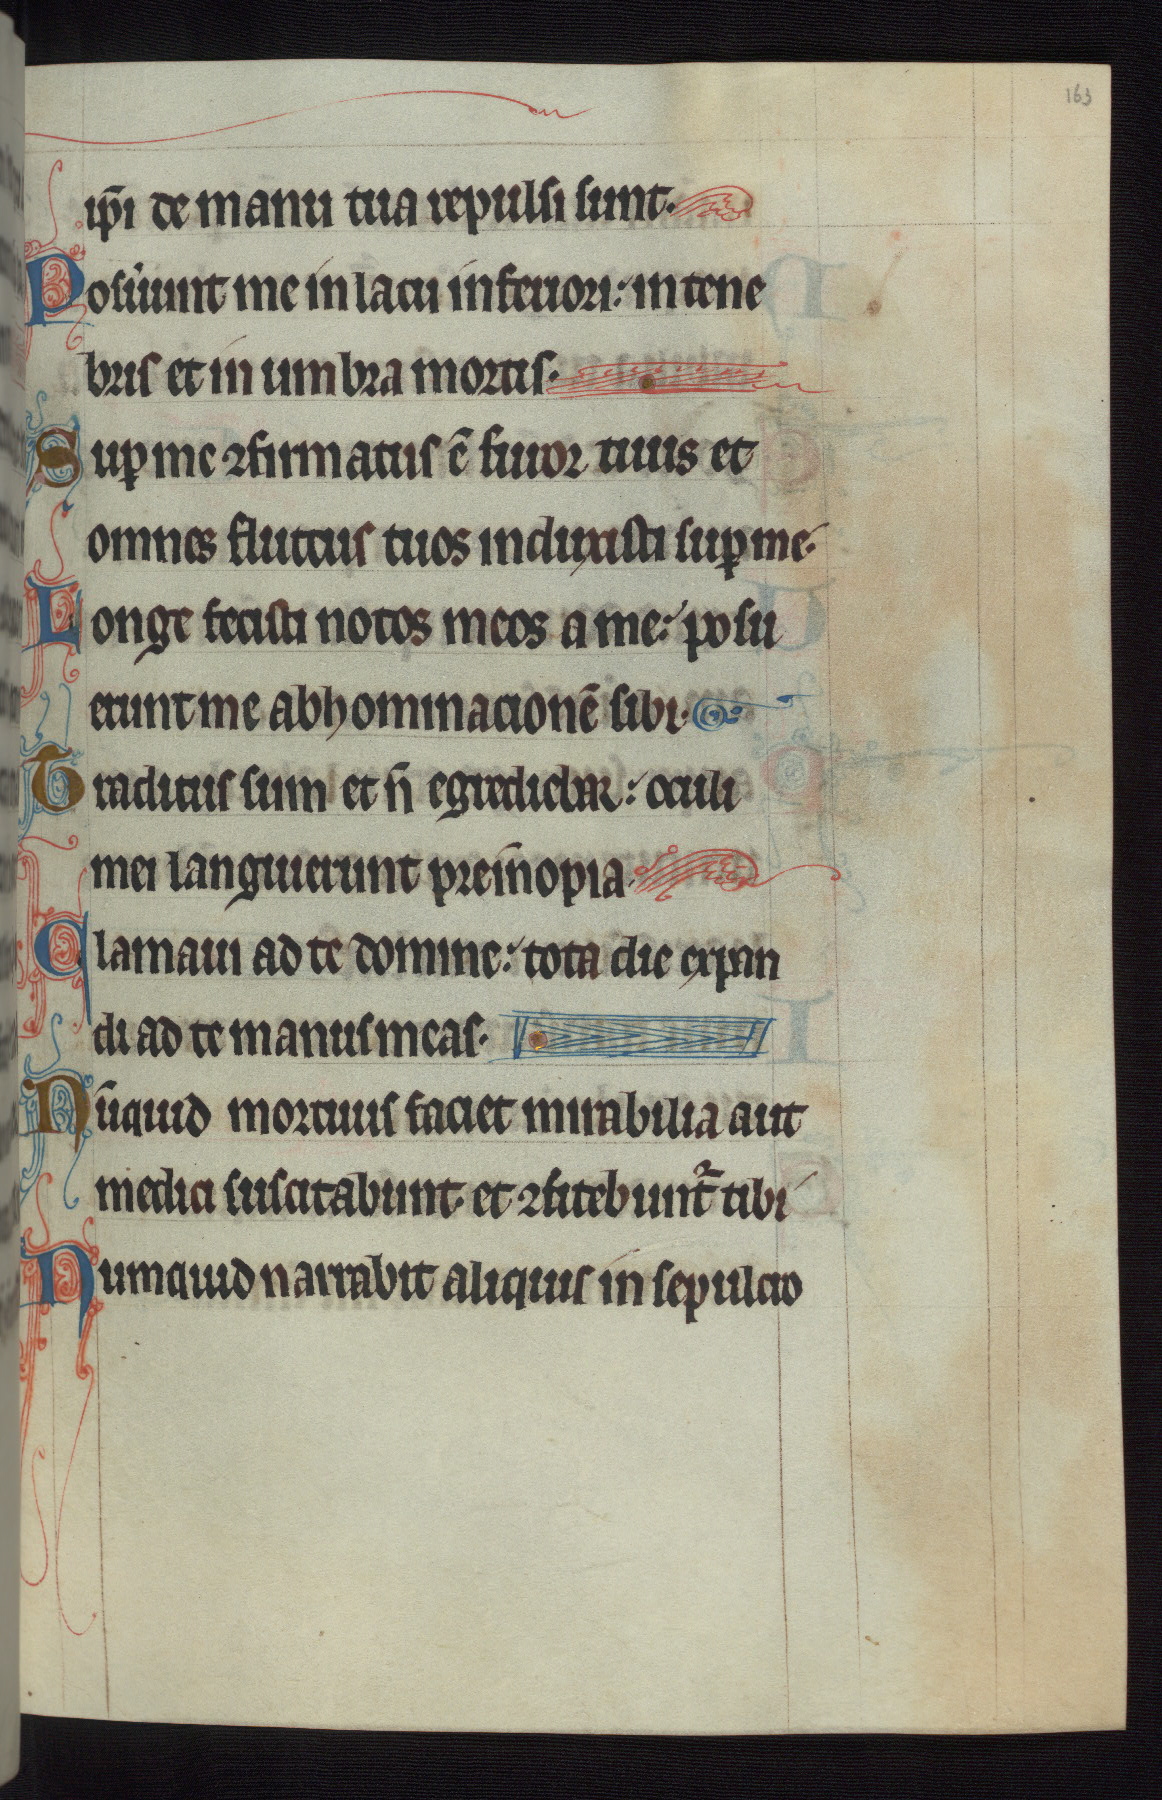 163
ip̄i de manu tua repulsi sunt.
Posūunt me in lacu inferiori: in tene
bris et in umbra mortis.
Suꝑ me ꝯfirmatus ē furor tuus et
omnes fluctus tuos induxisti suꝑ me.
Longe fecisti notos meos a me: posu
erunt me abhominacionē sibi.
Traditus sum et n̄ egrediebar: oculi
mei languerunt pre īnopia.
Clamaui ad te domine: tota die expan
di ad te manus meas.
Nūquid mortuis facies mirabilia aut
medici suscitabunt. et ꝯfitebunt᷑ tibi
Numquid narrabit aliquis in sepulcro